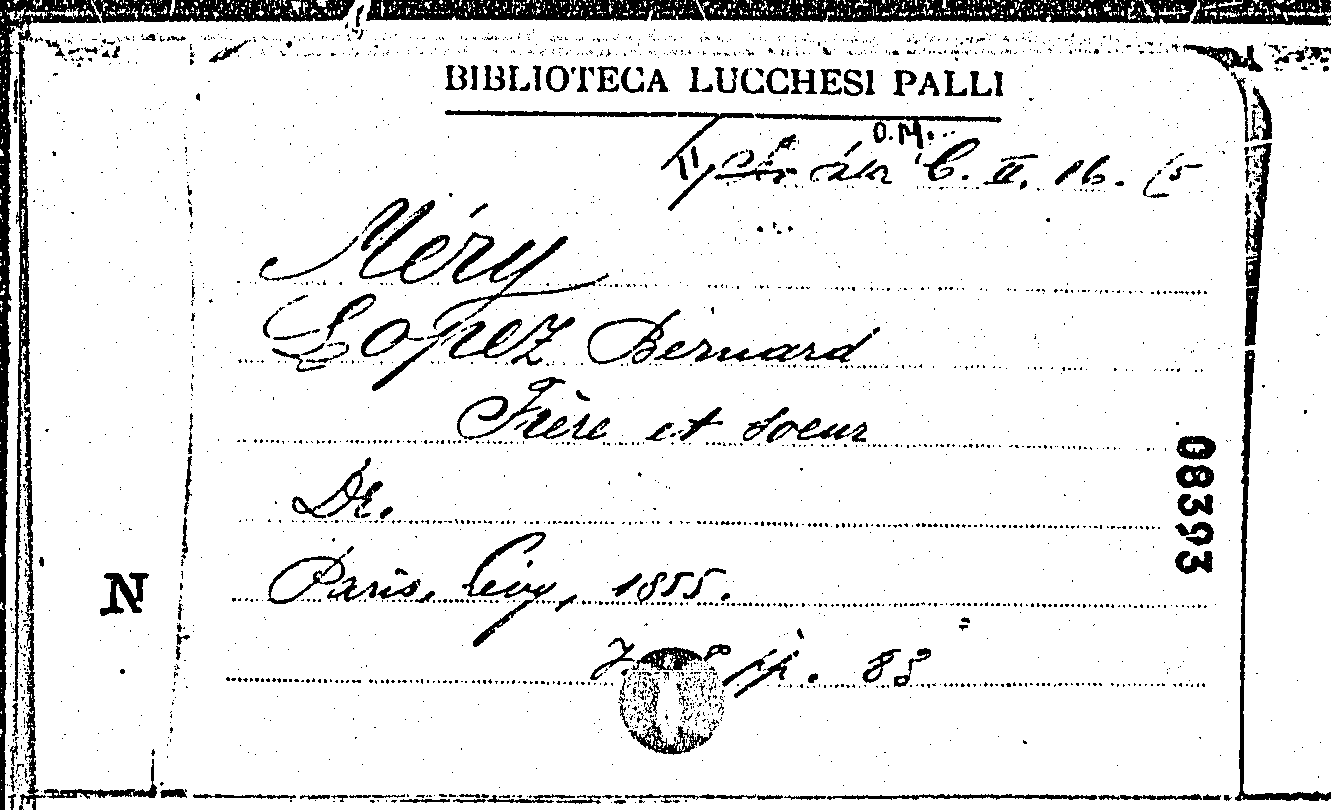 BIBLIOTECA LUCCHESI PALLI
O.M.
C. II. 16. (5
Méry
Lopez Bernard
Frère et soeur
Dr.
Paris, Lévy, 1855.
pp. 88
08393
N